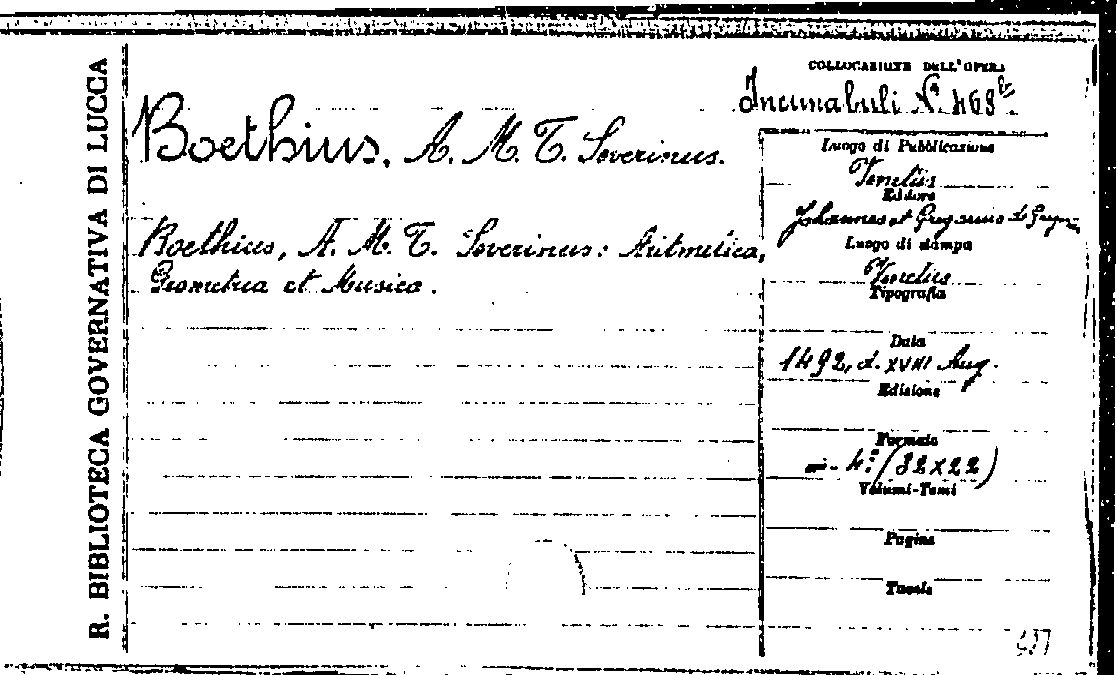 R. BIBLIOTECA GOVERNATIVA DI LUCCA
COLLOCAZIONE DELL'OPERA
Incunabuli N.
Boethius, A. M. T. Severinus.
Boethius, A. M. T. Severinus: Aritmetica,
Geometria et Musica.
Luogo di Pubblicazione
Venetiis
Editore
Johannes et Gregorius de
Luogo di stampa
Venetiis
Tipografia
Data
1492, d. XVIII Aug.
Edizione
Formato
in-4.º (32x22)
Volumi-Tomi
Pagine
Tavole